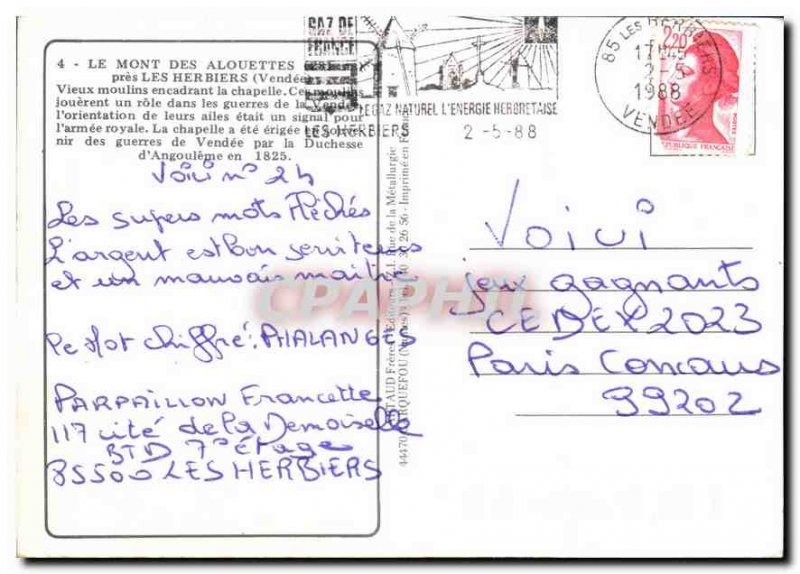 4 - LE MONT DES ALOUETTES
près LES HERBIERS (Vendée)
Vieux moulins encadrant la chapelle. Ces moulins
jouèrent un rôle dans les guerres de la Vendée
l'orientation de leurs ailes était un signal pour
l'armée royale. La chapelle a été érigée en souve-
nir des guerres de Vendée par la Duchesse
d'Angoulême en 1825.
GAZ DE
FRANCE
LE GAZ NATUREL L'ENERGIE HERBRETAISE
LES HERBIERS 2-5-88
85 LES HERBIERS
17H45
2-5
1988
VENDEE
2,20
POSTES
REPUBLIQUE FRANÇAISE
Voici n° 24
Les supers mots fléchés
L'argent est bon serviteur
et un mauvais maitre
Le Mot chiffré:
PARPAILLON Francette
117 cité de la Demoiselle
BTD 7° étage
85500 LES HERBIERS
Rue de la Métallurgie
Imprimé en
44470
CPAPHIL
Voici
jeux gagnants
CEDEX 2023
Paris Concours
99202